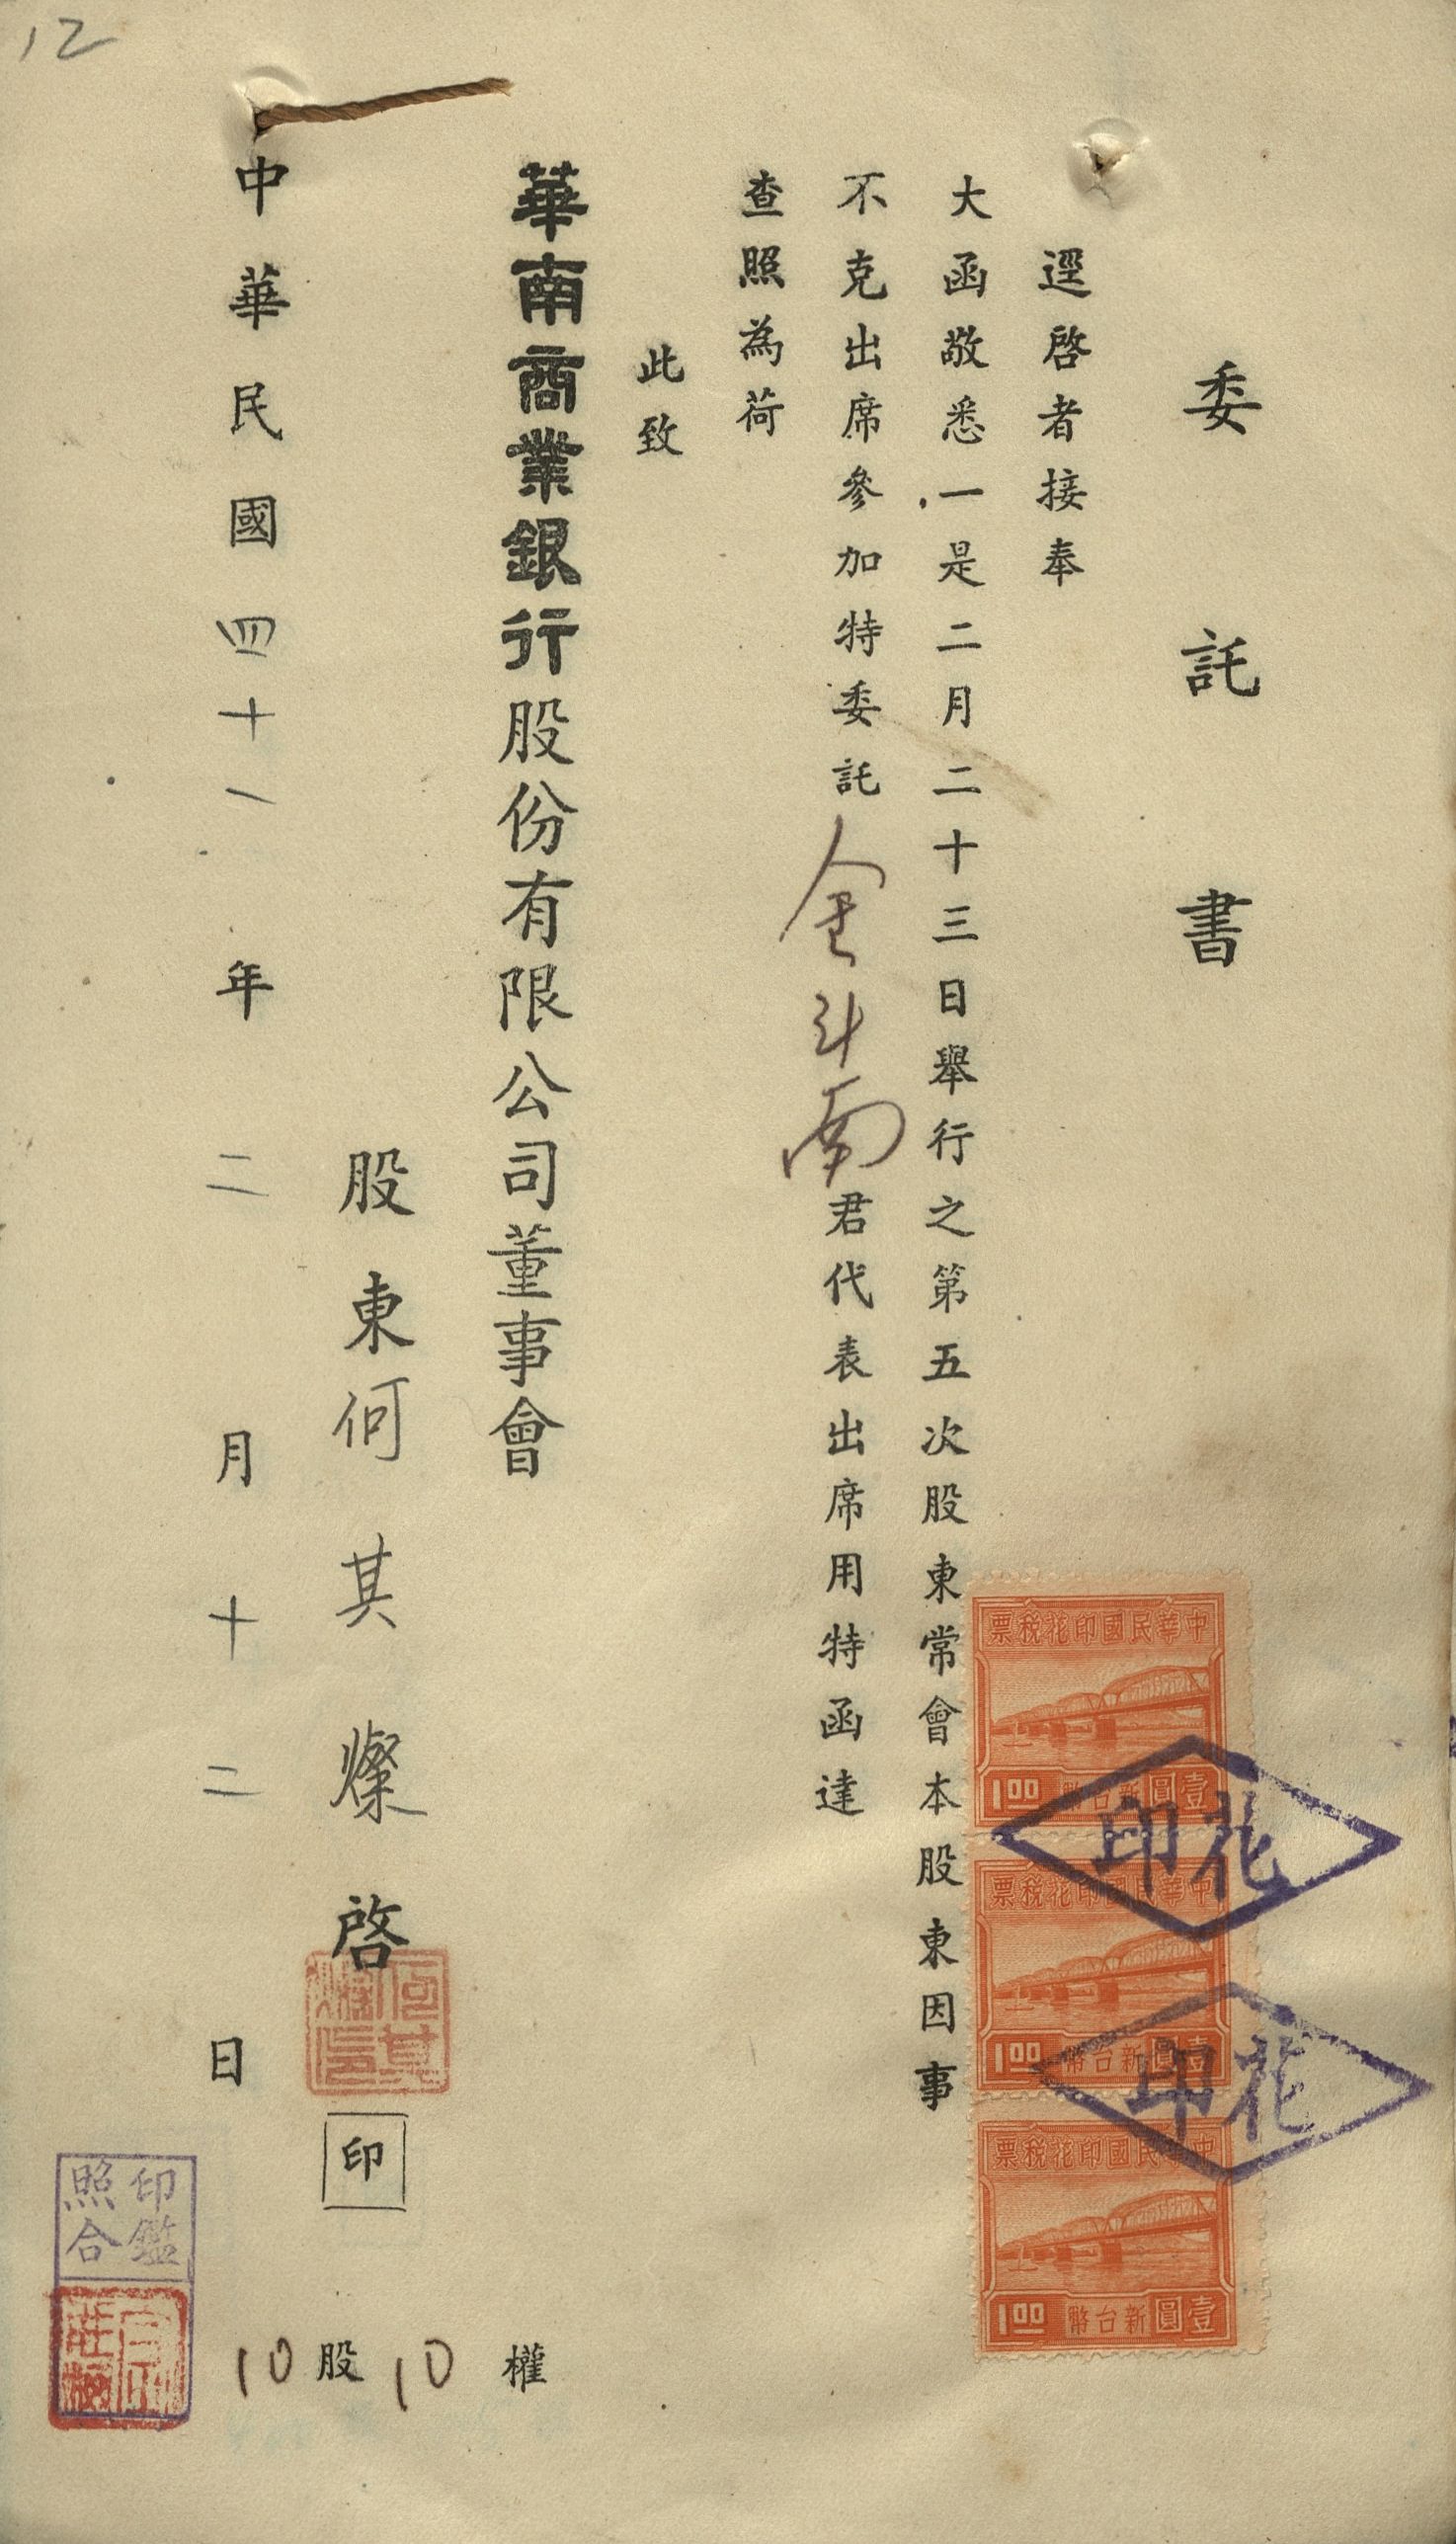 12
委託書
逕啓者接奉
大函敬悉一是二月二十三日舉行之第五次股東常會本股東因事
不克出席參加特委託金斗南君代表出席用特函達
查照為荷
此致
華南商業銀行股份有限公司董事會
股東何其燦啓
印
中華民國四十一年二月十二日
10股10權
中華民國印花稅票
壹圓新台幣
1.00
中華民國印花稅票
壹圓新台幣
1.00
中華民國印花稅票
壹圓新台幣
1.00
花印
花印
何其燦信
印鑑
照合